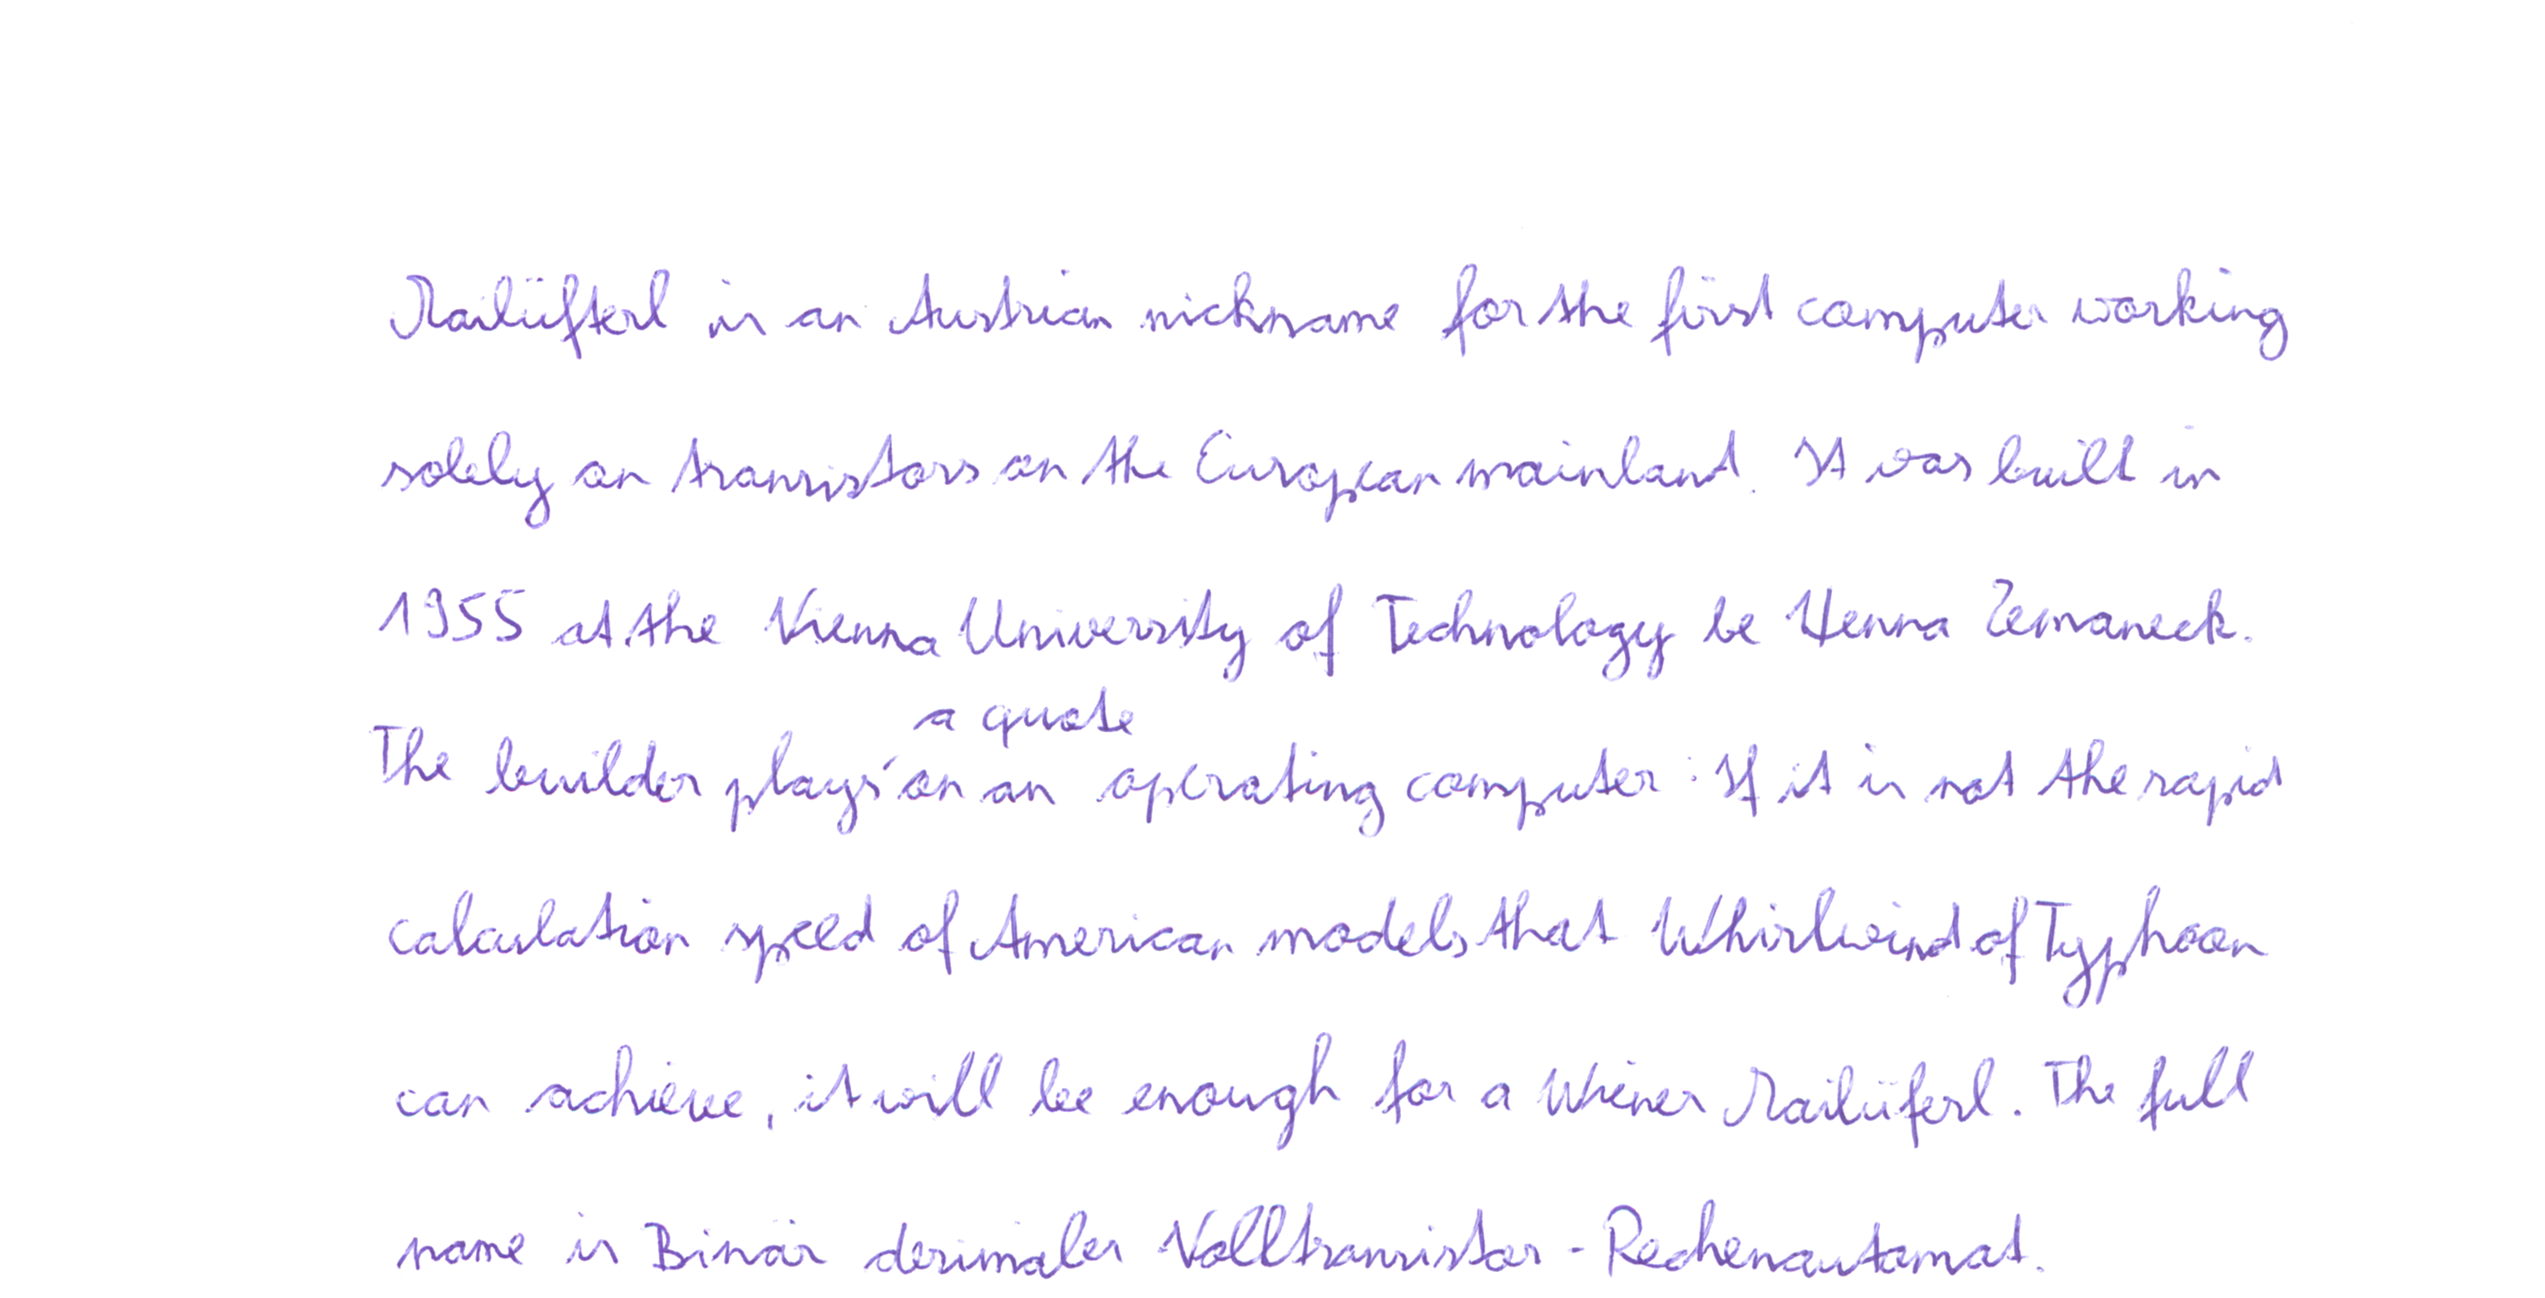 Mailüfterl is an Austrian nickname for the first computer working
solely on transistors on the European mainland. It was built in
1955 at the Vienna University of Technology be Henna Zemaneck.
a quote
The builder plays on an operating computer: If it is not the rapid
calculation speed of American models that Whirlwind of Typhoon
can achieve, it will be enough for a Wiener Mailüferl. The full
name is Binär dezimaler Volltransistor-Rechenautomat.